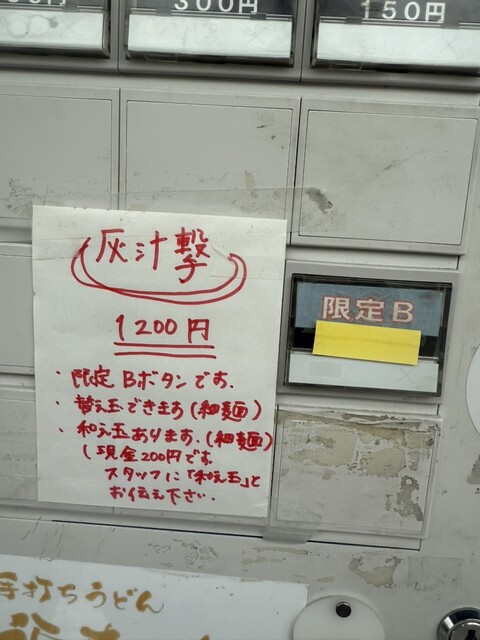 300円
150円
灰汁撃
1200円
・限定Bボタンです.
・替え玉できます(細麺)
・和え玉あります.(細麺)
(現金200円です
スタッフに「和え玉」と
お伝え下さい.
限定B
手打ちうどん